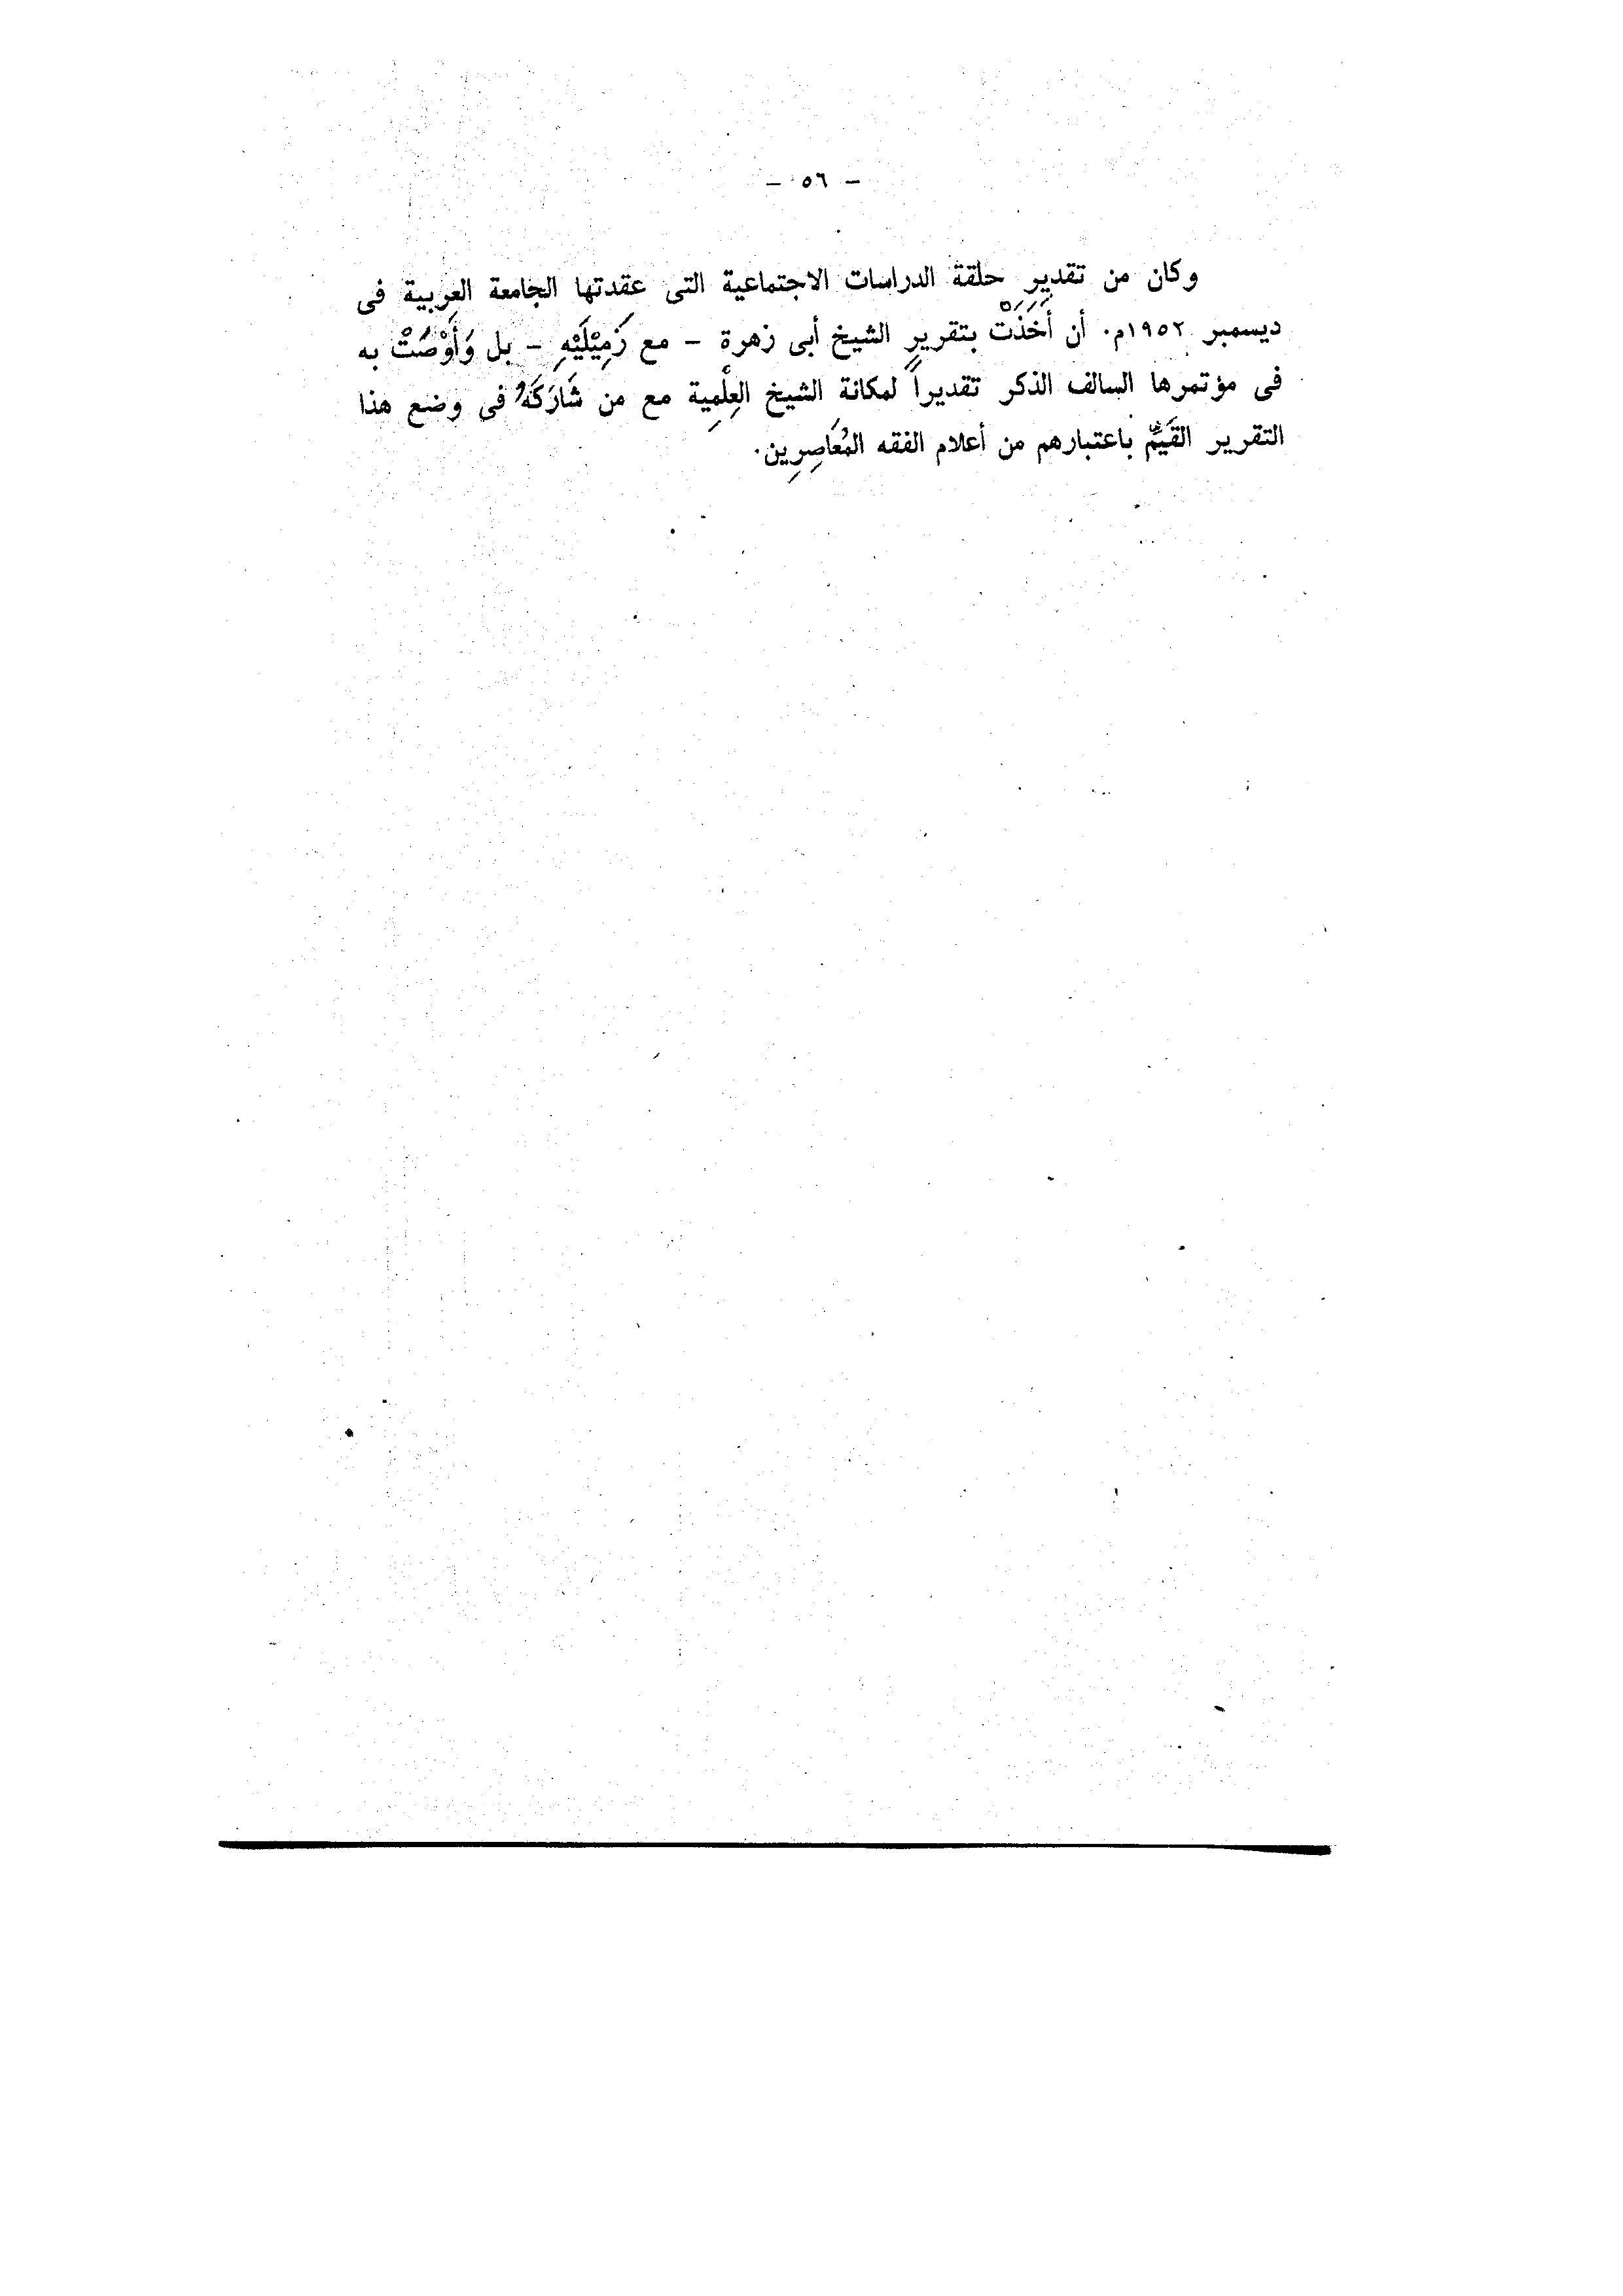 – ٥٦ –
وكان من تقديرِ حلقة الدراسات الاجتماعية التى عقدتها الجامعة العربية فى
ديسمبر ١٩٥٢م. أن أَخَذَتْ بتقريرِ الشيخ أبى زهرة – مع زَمِيْلَيْهِ – بل وَأَوْصَتْ به
فى مؤتمرها السالف الذكر تقديراً لمكانة الشيخ العِلْمِية مع من شَارَكَهُ فى وضع هذا
التقرير القَيِّم باعتبارهم من أعلام الفقه المُعَاصِرِين.